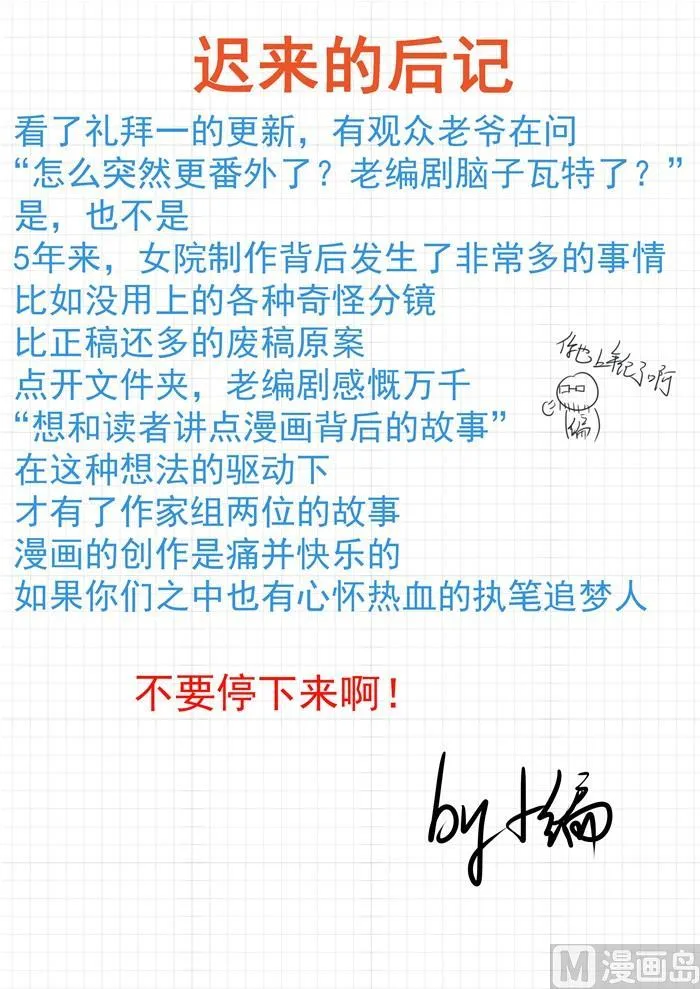 迟来的后记
看了礼拜一的更新，有观众老爷在问
“怎么突然更番外了？老编剧脑子瓦特了？”
是，也不是
5年来，女院制作背后发生了非常多的事情
比如没用上的各种奇怪分镜
比正稿还多的废稿原案
你也上年纪了啊
点开文件夹，老编剧感慨万千
编
“想和读者讲点漫画背后的故事”
在这种想法的驱动下
才有了作家组两位的故事
漫画的创作是痛并快乐的
如果你们之中也有心怀热血的执笔追梦人
不要停下来啊！
by 卜编
M 漫画岛